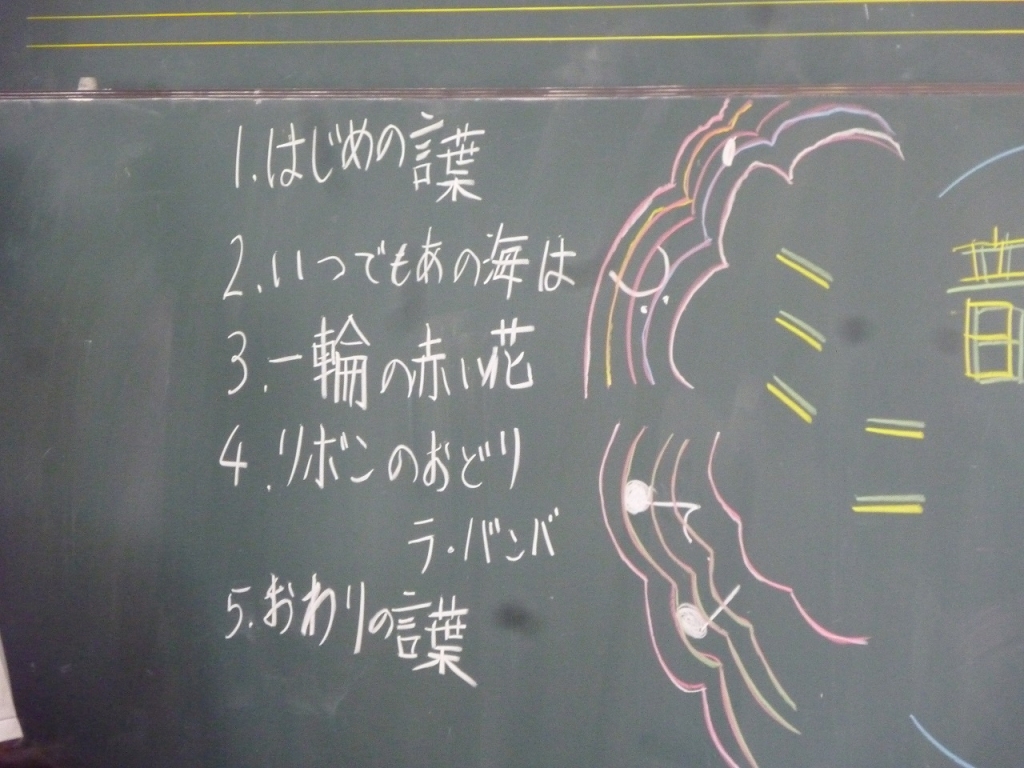 1. はじめの言葉
2. いつでもあの海は
3. 一輪の赤い花
4. リボンのおどり
ラ・バンバ
5. おわりの言葉